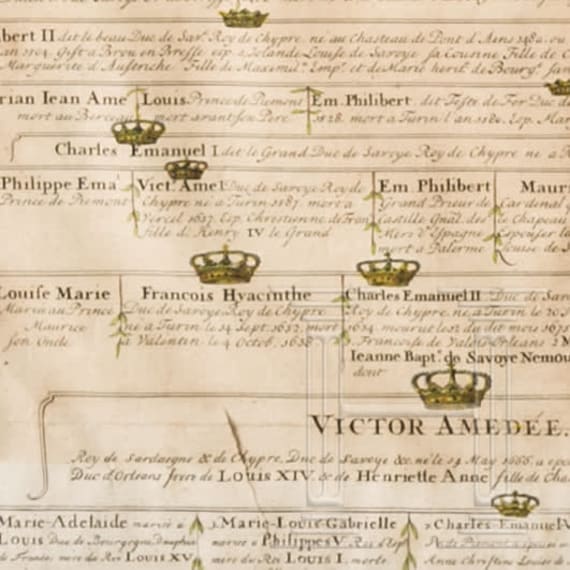 bert II dit le beau Duc de Sav. Roy de Chypre né au Chasteau de Pont d'Ains 1480. ou
an 1504. Gist a Brou en Bresse esp. a Iolande Louise de Savoye sa Cousine Fille de C
Marguerite d'Austriche Fille de Maximil. Emp. et de Marie herit. de Bourg.
rian Iean Ame
mort au Berceau
Louis Prince de Piemont
mort avant son Pere
Em. Philibert dit Teste de Fer Duc de
1528. mort a Turin l'an 1580. Esp. Mar
Charles Emanuel I dit le Grand Duc de Savoye Roy de Chypre né a R
Philippe Ema
Prince de Piemont
Vict. Ame I Duc de Savoye Roy de
Chypre né a Turin 1587. mort a
Verceil 1637. Esp. Chrestienne de Fran
fille d' Henry IV le Grand
Em Philibert
Grand Prieur de
Castille Gnal. des
Mers d'Espagne
mort a Palerme
Mauri
Cardenal
de Chapeau
Espouser
Louise de S
Louise Marie
Mariée au Prince
Maurice
son Oncle
Francois Hyacinthe
Duc de Savoye Roy de Chypre
né a Turin le 14 Sept. 1632. mort
a Valentin le 4 Octob. 1638
Charles Emanuel II Duc de Sav
Roy de Chypre, né a Turin le 20
1634 mourut le 12 du dit mois 1675
Francoise de Valois Orleans 2 M
Ieanne Bapt. de Savoye Nemou
dont
VICTOR AMEDÉE.
Roy de Sardaigne & de Chypre, Duc de Savoye &c. né le 14 May 1666. a epou
Duc d'Orleans frere de Louis XIV. & de Henriette Anne fille de Cha
Marie-Adelaide mariée a
Louis Duc de Bourgogne Dauphin
de France, mere du Roi Louis XV.
Marie-Louis-Gabrielle
mariée a Philippes V. Roi d'Esp
mere du Roi Louis I.
Charles Emanuel V
P. de Piemont a epousé
Anne Christine Louise de